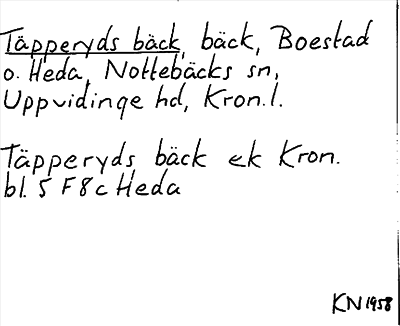 Täpperyds bäck, bäck, Boestad
o. Heda, Nottebäcks sn,
Uppvidinge hd, Kron.l.
Täpperyds bäck ek Kron.
bl. 5 F 8 c Heda
KN 1958